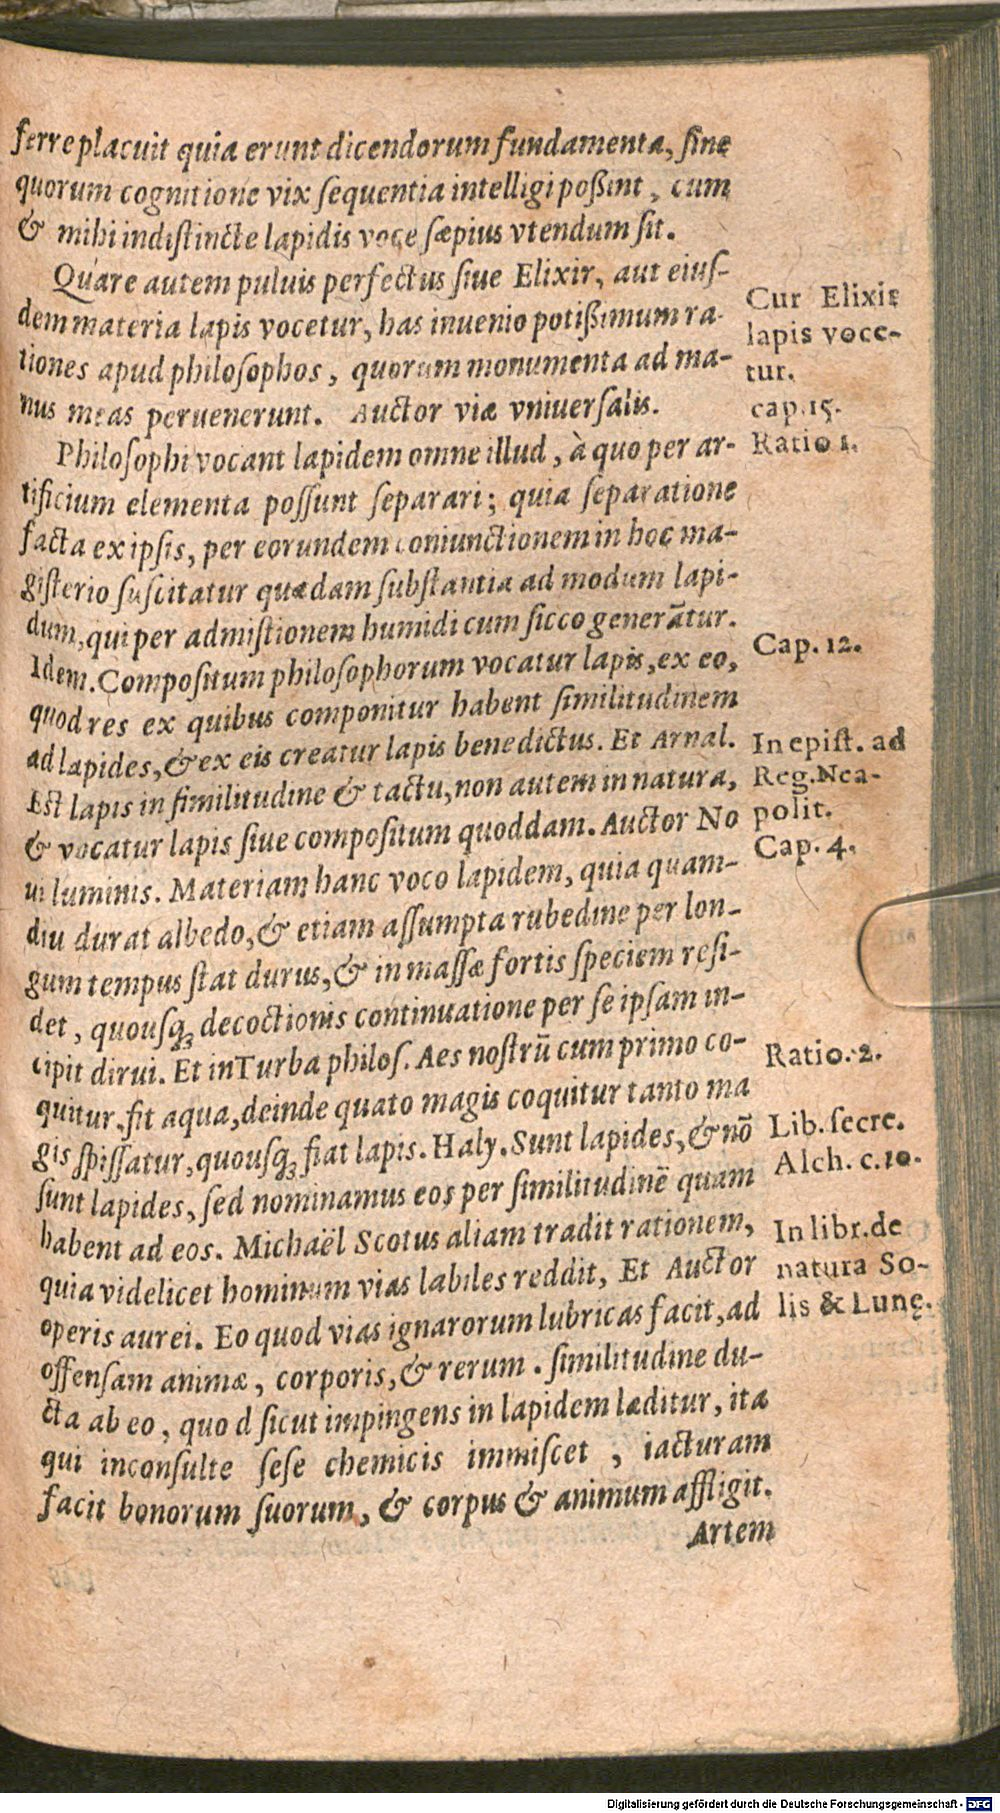 ferre placuit quia erunt dicendorum fundamenta, ſine
quorum cognitione vix ſequentia intelligi poßint, cum
& mihi indiſtincte lapidis voce ſæpius vtendum ſit.
Quare autem puluis perfectus ſiue Elixir, aut eiuſ-
dem materia lapis vocetur, has inuenio potißimum ra-
tiones apud philoſophos, quorum monumenta ad ma-
nus meas peruenerunt. Auctor viæ vniuerſalis.
Philoſophi vocant lapidem omne illud, à quo per ar-
tificium elementa poſſunt ſeparari; quia ſeparatione
facta ex ipſis, per eorundem coniunctionem in hoc ma-
giſterio ſuſcitatur quædam ſubſtantia ad modum lapi-
dum, qui per admiſtionem humidi cum ſicco generãtur.
Idem. Compoſitum philoſophorum vocatur lapis, ex eo,
quod res ex quibus componitur habent ſimilitudinem
ad lapides, & ex eis creatur lapis benedictus. Et Arnal.
Eſt lapis in ſimilitudine & tactu, non autem in natura,
& vocatur lapis ſiue compoſitum quoddam. Auctor No
ui luminis. Materiam hanc voco lapidem, quia quam-
diu durat albedo, & etiam aſſumpta rubedine per lon-
gum tempus ſtat durus, & in maſſæ fortis ſpeciem reſi-
det, quouſqꝫ decoctionis continuatione per ſe ipſam in-
cipit dirui. Et in Turba philoſ. Aes noſtrũ cum primo co-
quitur, fit aqua, deinde quato magis coquitur tanto ma
gis ſpiſſatur, quouſqꝫ fiat lapis. Haly. Sunt lapides, & nõ
ſunt lapides, ſed nominamus eos per ſimilitudinẽ quam
habent ad eos. Michaël Scotus aliam tradit rationem,
quia videlicet hominum vias labiles reddit, Et Auctor
operis aurei. Eo quod vias ignarorum lubricas facit, ad
offenſam animæ, corporis, & rerum. ſimilitudine du-
cta ab eo, quo d ſicut impingens in lapidem læditur, ita
qui inconſulte ſeſe chemicis immiſcet, iacturam
facit bonorum ſuorum, & corpus & animum affligit.
Artem
Cur Elixir
lapis voce-
tur.
cap.15.
Ratio 1.
Cap. 12.
In epiſt. ad
Reg. Nea-
polit.
Cap. 4.
Ratio. 2.
Lib. ſecre.
Alch. c.10.
In libr. de
natura So-
lis & Lunę.
Digitalisierung gefördert durch die Deutsche Forschungsgemeinschaft - DFG